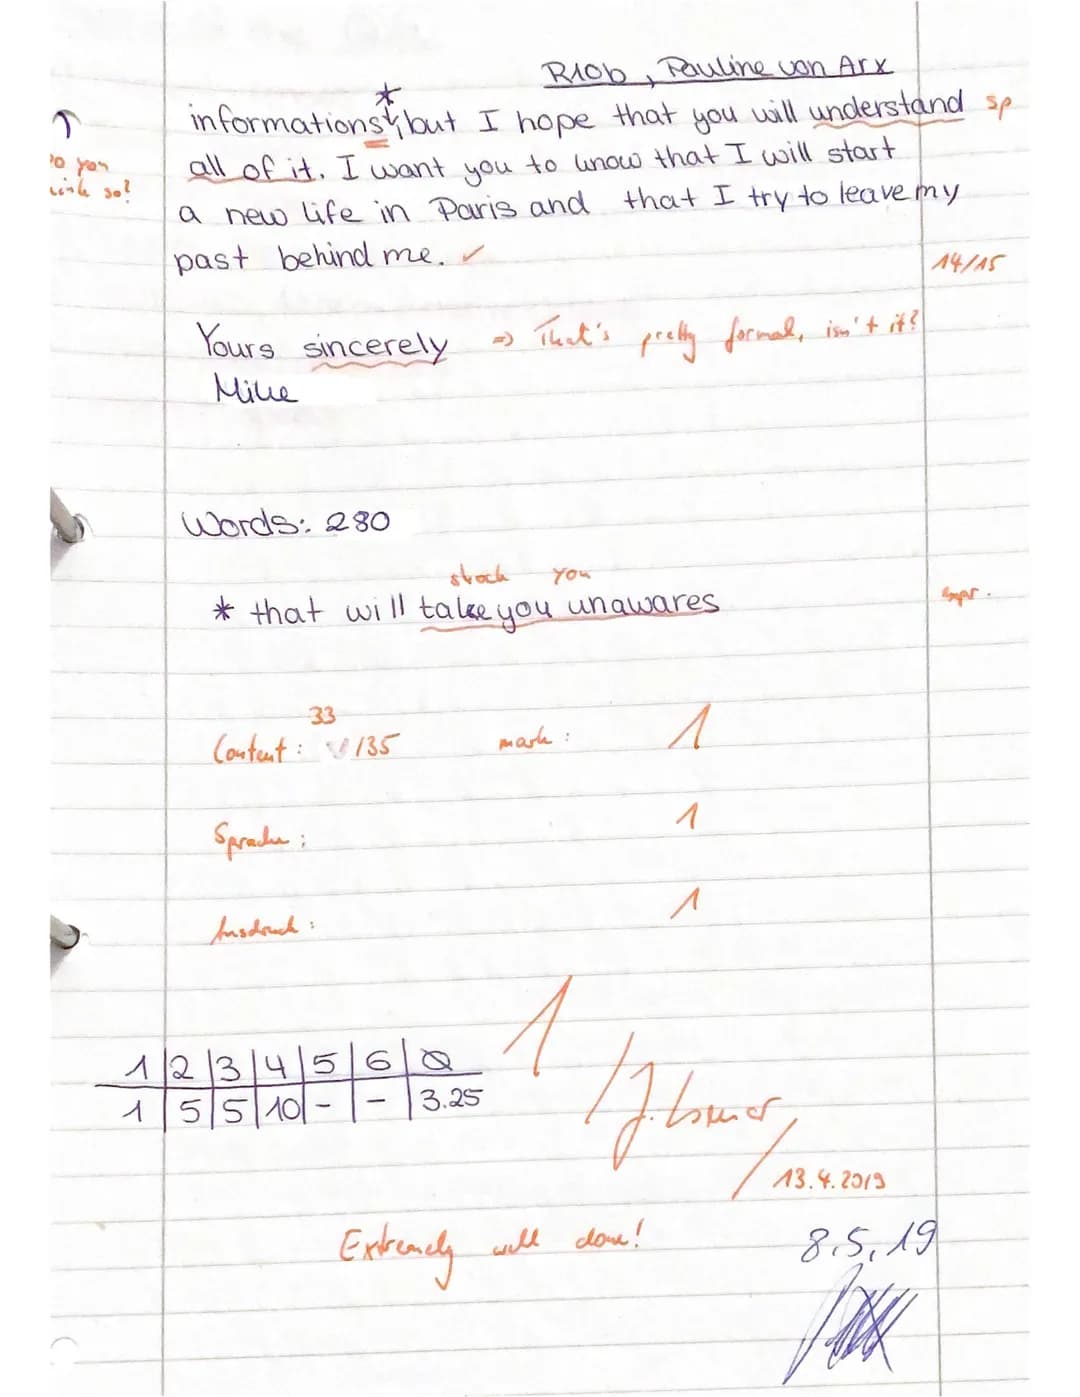 R10b, Pauline von Arx
informations*, but I hope that you will understand sp
you
so?
all of it. I want you to know that I will start
a new life in Paris and that I try to leave my
past behind me. ✓
14/15
Yours sincerely => That's pretty formal, isn't it?
Mike
Words: 280
shock you
* that will take you unawares
Content: 33/35 mark: 1
Sprache: 1
Ausdruck: 1
1
1 2 3 4 5 6 Ø
1 5 5 10 - - 3.25
13.4.2019
Extremely well done!
8.5.19